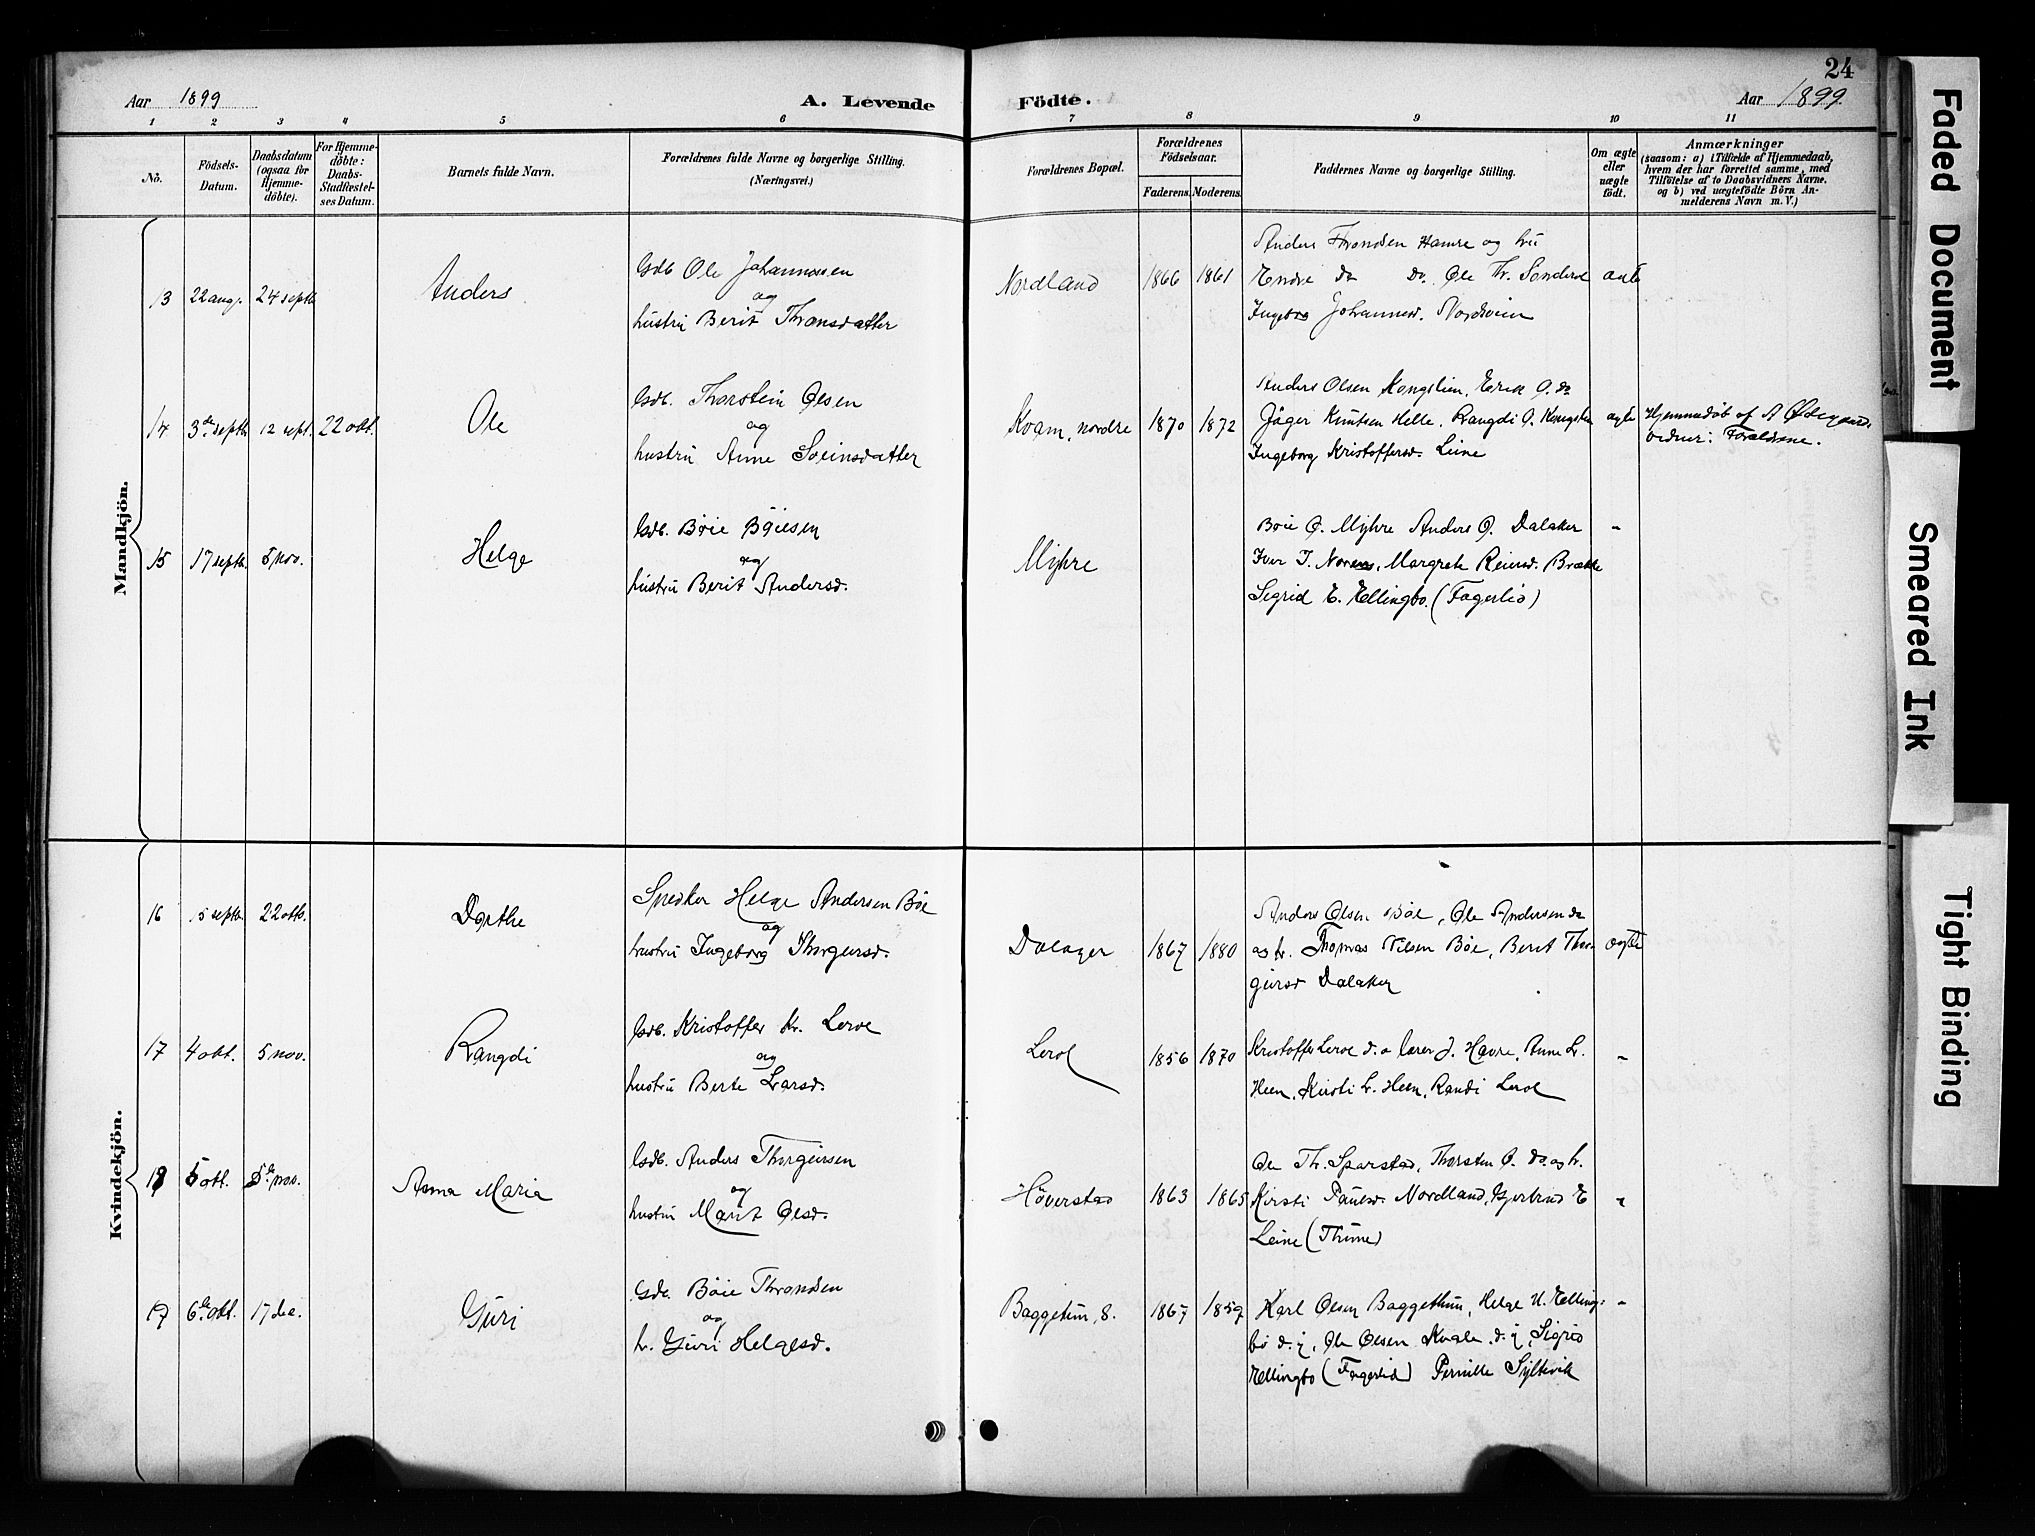 24
Aar 1899
A. Levende Födte.
Aar 1899
1 2 3 4 5 6 7 8 9 10 11
Nò.
Födsels-
Datum.
Daabsdatum
(ogsaa for
Hjemme-
döbte).
For Hjemme-
döbte:
Daabs-
Stadfæstel-
ses Datum.
Barnets fulde Navn.
Forældrenes fulde Navne og borgerlige Stilling.
(Næringsvei.)
Forældrenes Bopæl.
Forældrenes
Födselsaar.
Faderens. Moderens.
Faddernes Navne og borgerlige Stilling.
Om ægte
eller
uægte
födt.
Anmærkninger
(saasom: a) i Tilfælde af Hjemmedaab,
hvem der har forrettet samme, med
Tilföielse af to Daabsvidners Navne,
og b) ved uægtefödte Börn An-
melderens Navn m. V.)
Mandkjön.
13 22 aug. 24 septb. Anders
Gdb Ole Johannessen
og
hustru Berit Thronsdatter
Nordland 1866 1861
Anders Throndsen Hamre og hu
Endre do Do. Ole Th.
Ingebor Johannesd.
ægte
14 3de septb 12 sept. 22 okt. Ole
Gdb. Thorstein Olsen
og
hustru Anne Sveinsdatter
Kvam, nordre 1870 1872
Anders Olsen Kongslien, Erik O. do
Jöger Knutsen Helle. Rangdi O.
Ingeborg Kristoffersd. Leine
ægte
Hjemmedöb af A Ödegaard.
Forældrene.
15 17 septb. 5 nov. Helge
Gdb. Böie Böiesen
og
hustru Berit Andersd.
Myhre
Böie O. Myhre Anders O. Dalaker
Iver I. Margrete Brække
Sigrid E. Ellingbo. (Fagerlid)
"
Kvindekjön.
16 15 septb. 22 oktb. Dorthe
Snedker Helge Andersen Böe
og
hustru Ingeborg Thorgersd.
Dalager 1867 1880
Anders Olsen Böe, Ole Andersen do
og h. Thomas Nilsen Böe, Berit Thor
geirsd Dalaker
ægte
17 4 okt. 5 nov. Rangdi
Gdb. Kristoffer Kr. Leroe
og
hustru Berte Larsd.
Leroe 1856 1870
Kristoffer Leroe d. æ lærer J. Havre, Anne L.
Heen, Kirsti L. Heen, Randi Leroe
"
18 5 okt. 5te nov. Anna Maria
Gdb. Anders Thorgeirsen
og
hustru Marit Olsd.
Höverstad 1863 1865
Ole Th. Sparstad, Thorsten O. do. og h.
Kirsti Paulsd. Nordland, Gjertrud E
Leine (Thune)
"
6te okt. 17 dec. Guri
Gdb. Böie Throndsen
og
h. Guri Helgesd.
Baggetun, S. 1867 1859
Karl Olsen Baggethun, Helge U. Elling:
bö d. y. Ole Olsen Kvale d. y, Sigrid
Ellingbo (Fagerlid) Pernille Syltevik
"
Faded Document
Smeared Ink
Tight Binding